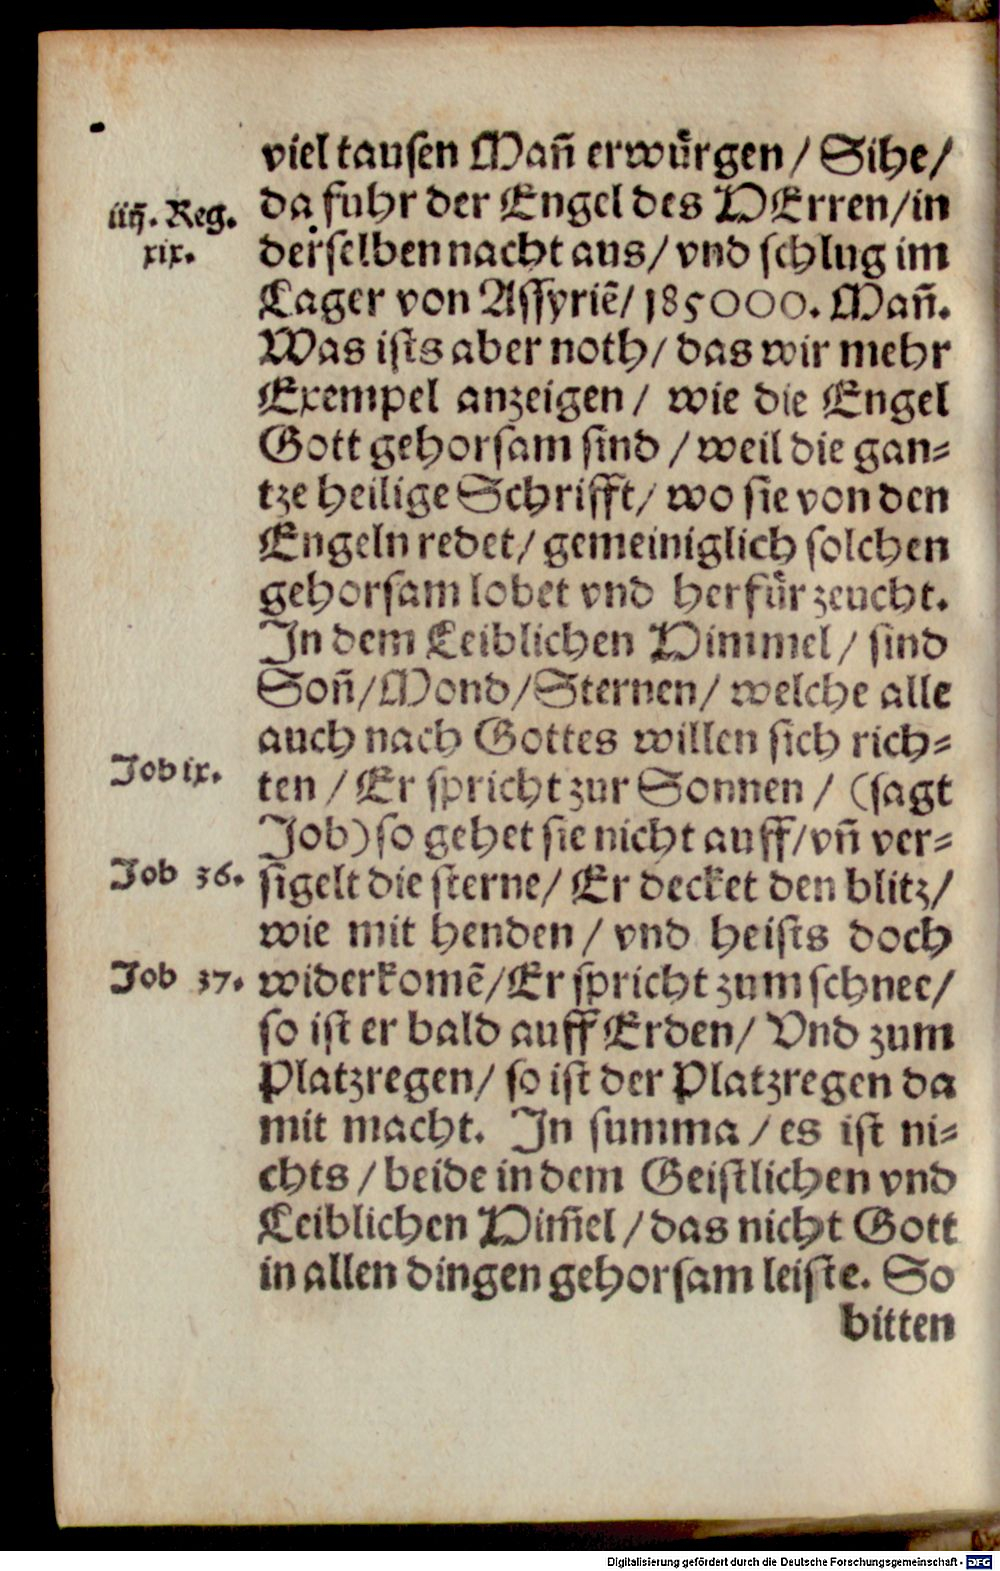 viel tausen Mañ erwuͤrgen / Sihe /
da fuhr der Engel des HErren / in
iiij. Reg.
xix.
derselben nacht aus / vnd schlug im
Lager von Assyriẽ / 185000. Mañ.
Was ists aber noth / das wir mehr
Exempel anzeigen / wie die Engel
Gott gehorsam sind / weil die gan-
tze heilige Schrifft / wo sie von den
Engeln redet / gemeiniglich solchen
gehorsam lobet vnd herfuͤr zeucht.
In dem Leiblichen Himmel / sind
Soñ / Mond / Sternen / welche alle
auch nach Gottes willen sich rich-
Job ix.
ten / Er spricht zur Sonnen / (sagt
Job) so gehet sie nicht auff / vñ ver-
Job 36.
sigelt die sterne / Er decket den blitz /
wie mit henden / vnd heists doch
Job 37.
widerkomẽ / Er spricht zum schnee /
so ist er bald auff Erden / Vnd zum
Platzregen / so ist der Platzregen da
mit macht. In summa / es ist ni-
chts / beide in dem Geistlichen vnd
Leiblichen Him̃el / das nicht Gott
in allen dingen gehorsam leiste. So
bitten
Digitalisierung gefördert durch die Deutsche Forschungsgemeinschaft - DFG